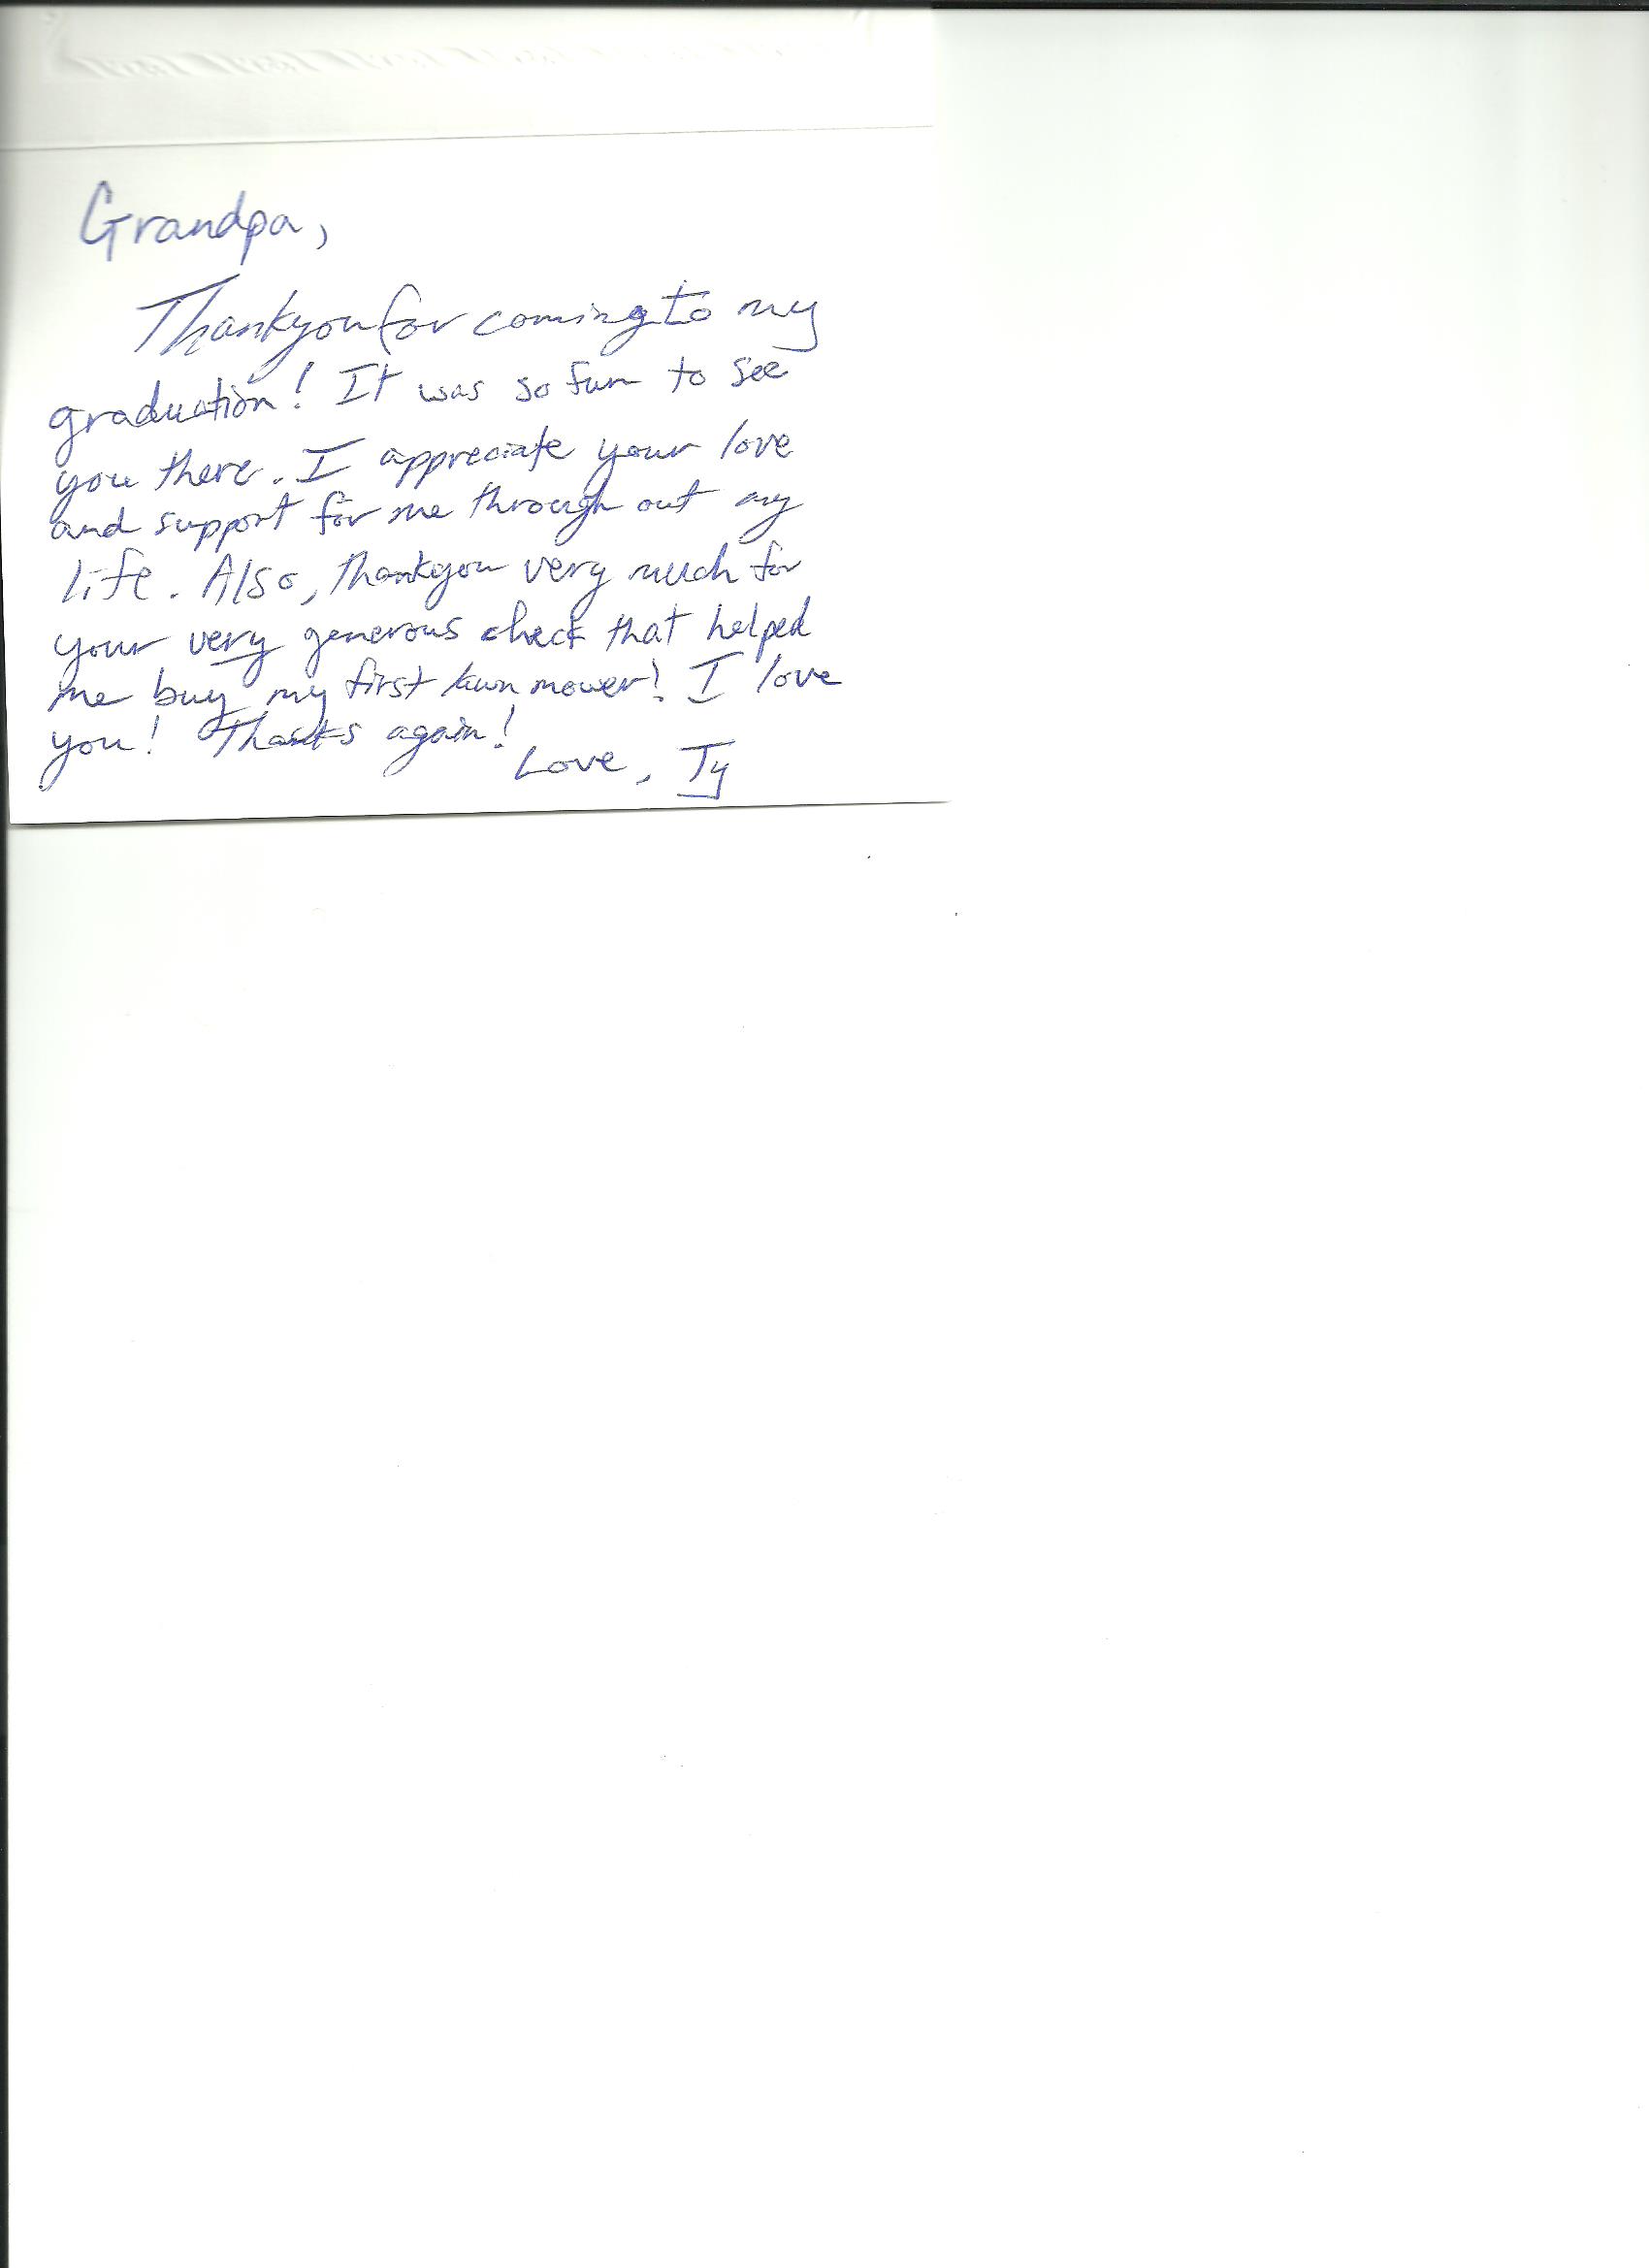 Grandpa,
Thankyou for coming to my
graduation! It was so fun to see
you there. I appreciate your love
and support for me through out my
life. Also, Thankyou very much for
your very generous check that helped
me buy my first lawn mower! I love
you! Thanks again!
Love, Ty